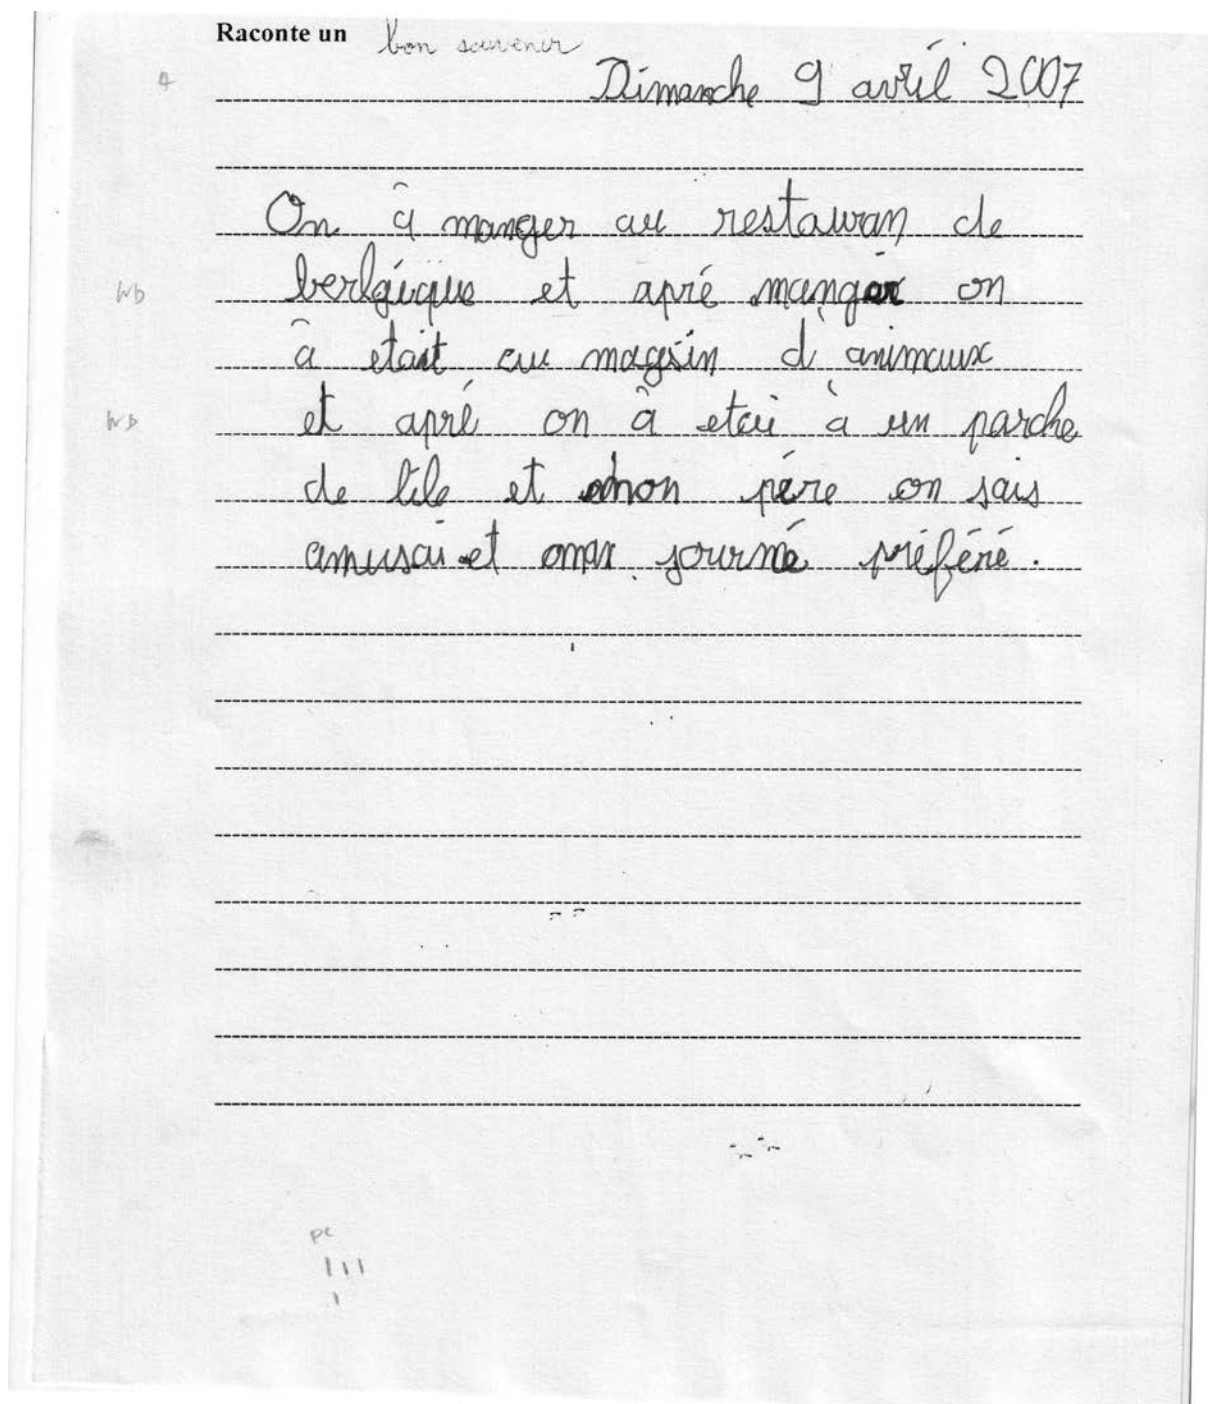 Raconte un bon souvenir
Dimanche 9 avril 2007
On â manger au restauran de
berlgéique et apré manger on
â etait au magsin d'animaux
et apré on â etai à un parche
de lile et mon père on sais
amusai et ma journé préféré.
pc